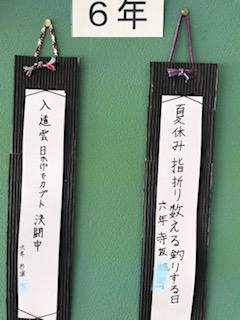 6年
夏休み 指折り数える釣りする日
六年 寺坂
入道雲 日かげでカブト 決闘中
六年